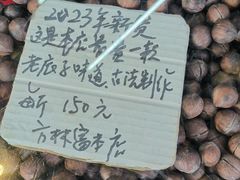 2023年新货
这是本店卖第一款
老底子味道.古法制作
每斤 150元
方林富本店